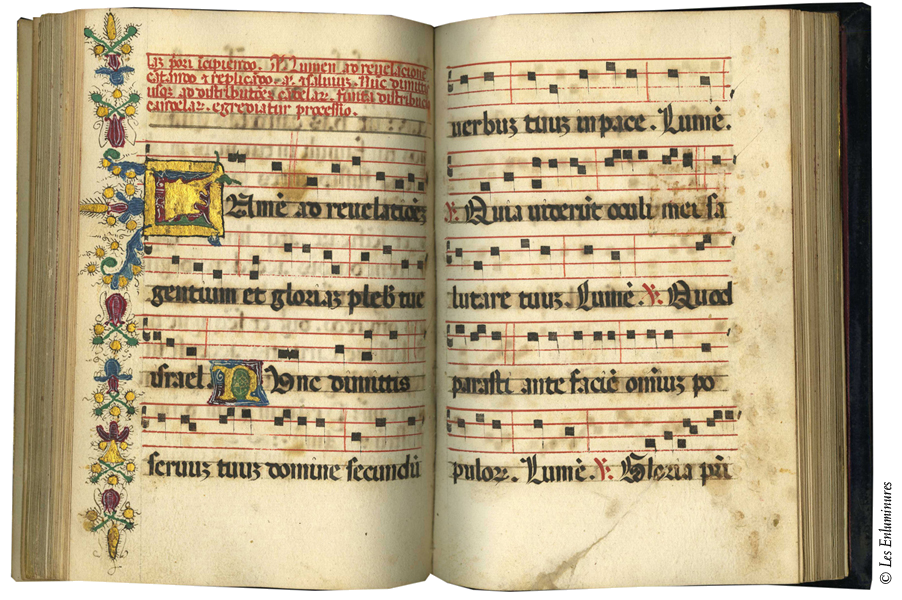 laz pori icipiendo. Lumen ad reuelacione
cātando & replicādo. aꝛ aſaluuz. Nūc dimittis
uſqz ad diſtributōes cādelaꝛ. finita diſtributiōe
candelaꝛ. egrediatur proceſſio.
Lumē ad reuelationēz
gentium et gloriaz plebꝭ tue
iſrael. Nunc dimittis
ſeruuz tuuz domine ſecundū
uerbuz tuuz in pace. Lumē.
℣. Quia uiderūt oculi mei ſa
lutare tuuz. Lumē. ℣. Quod
paraſti ante faciē omiuz po
puloꝛ. Lumē. ℣. Gloria pri
© Les Enluminures